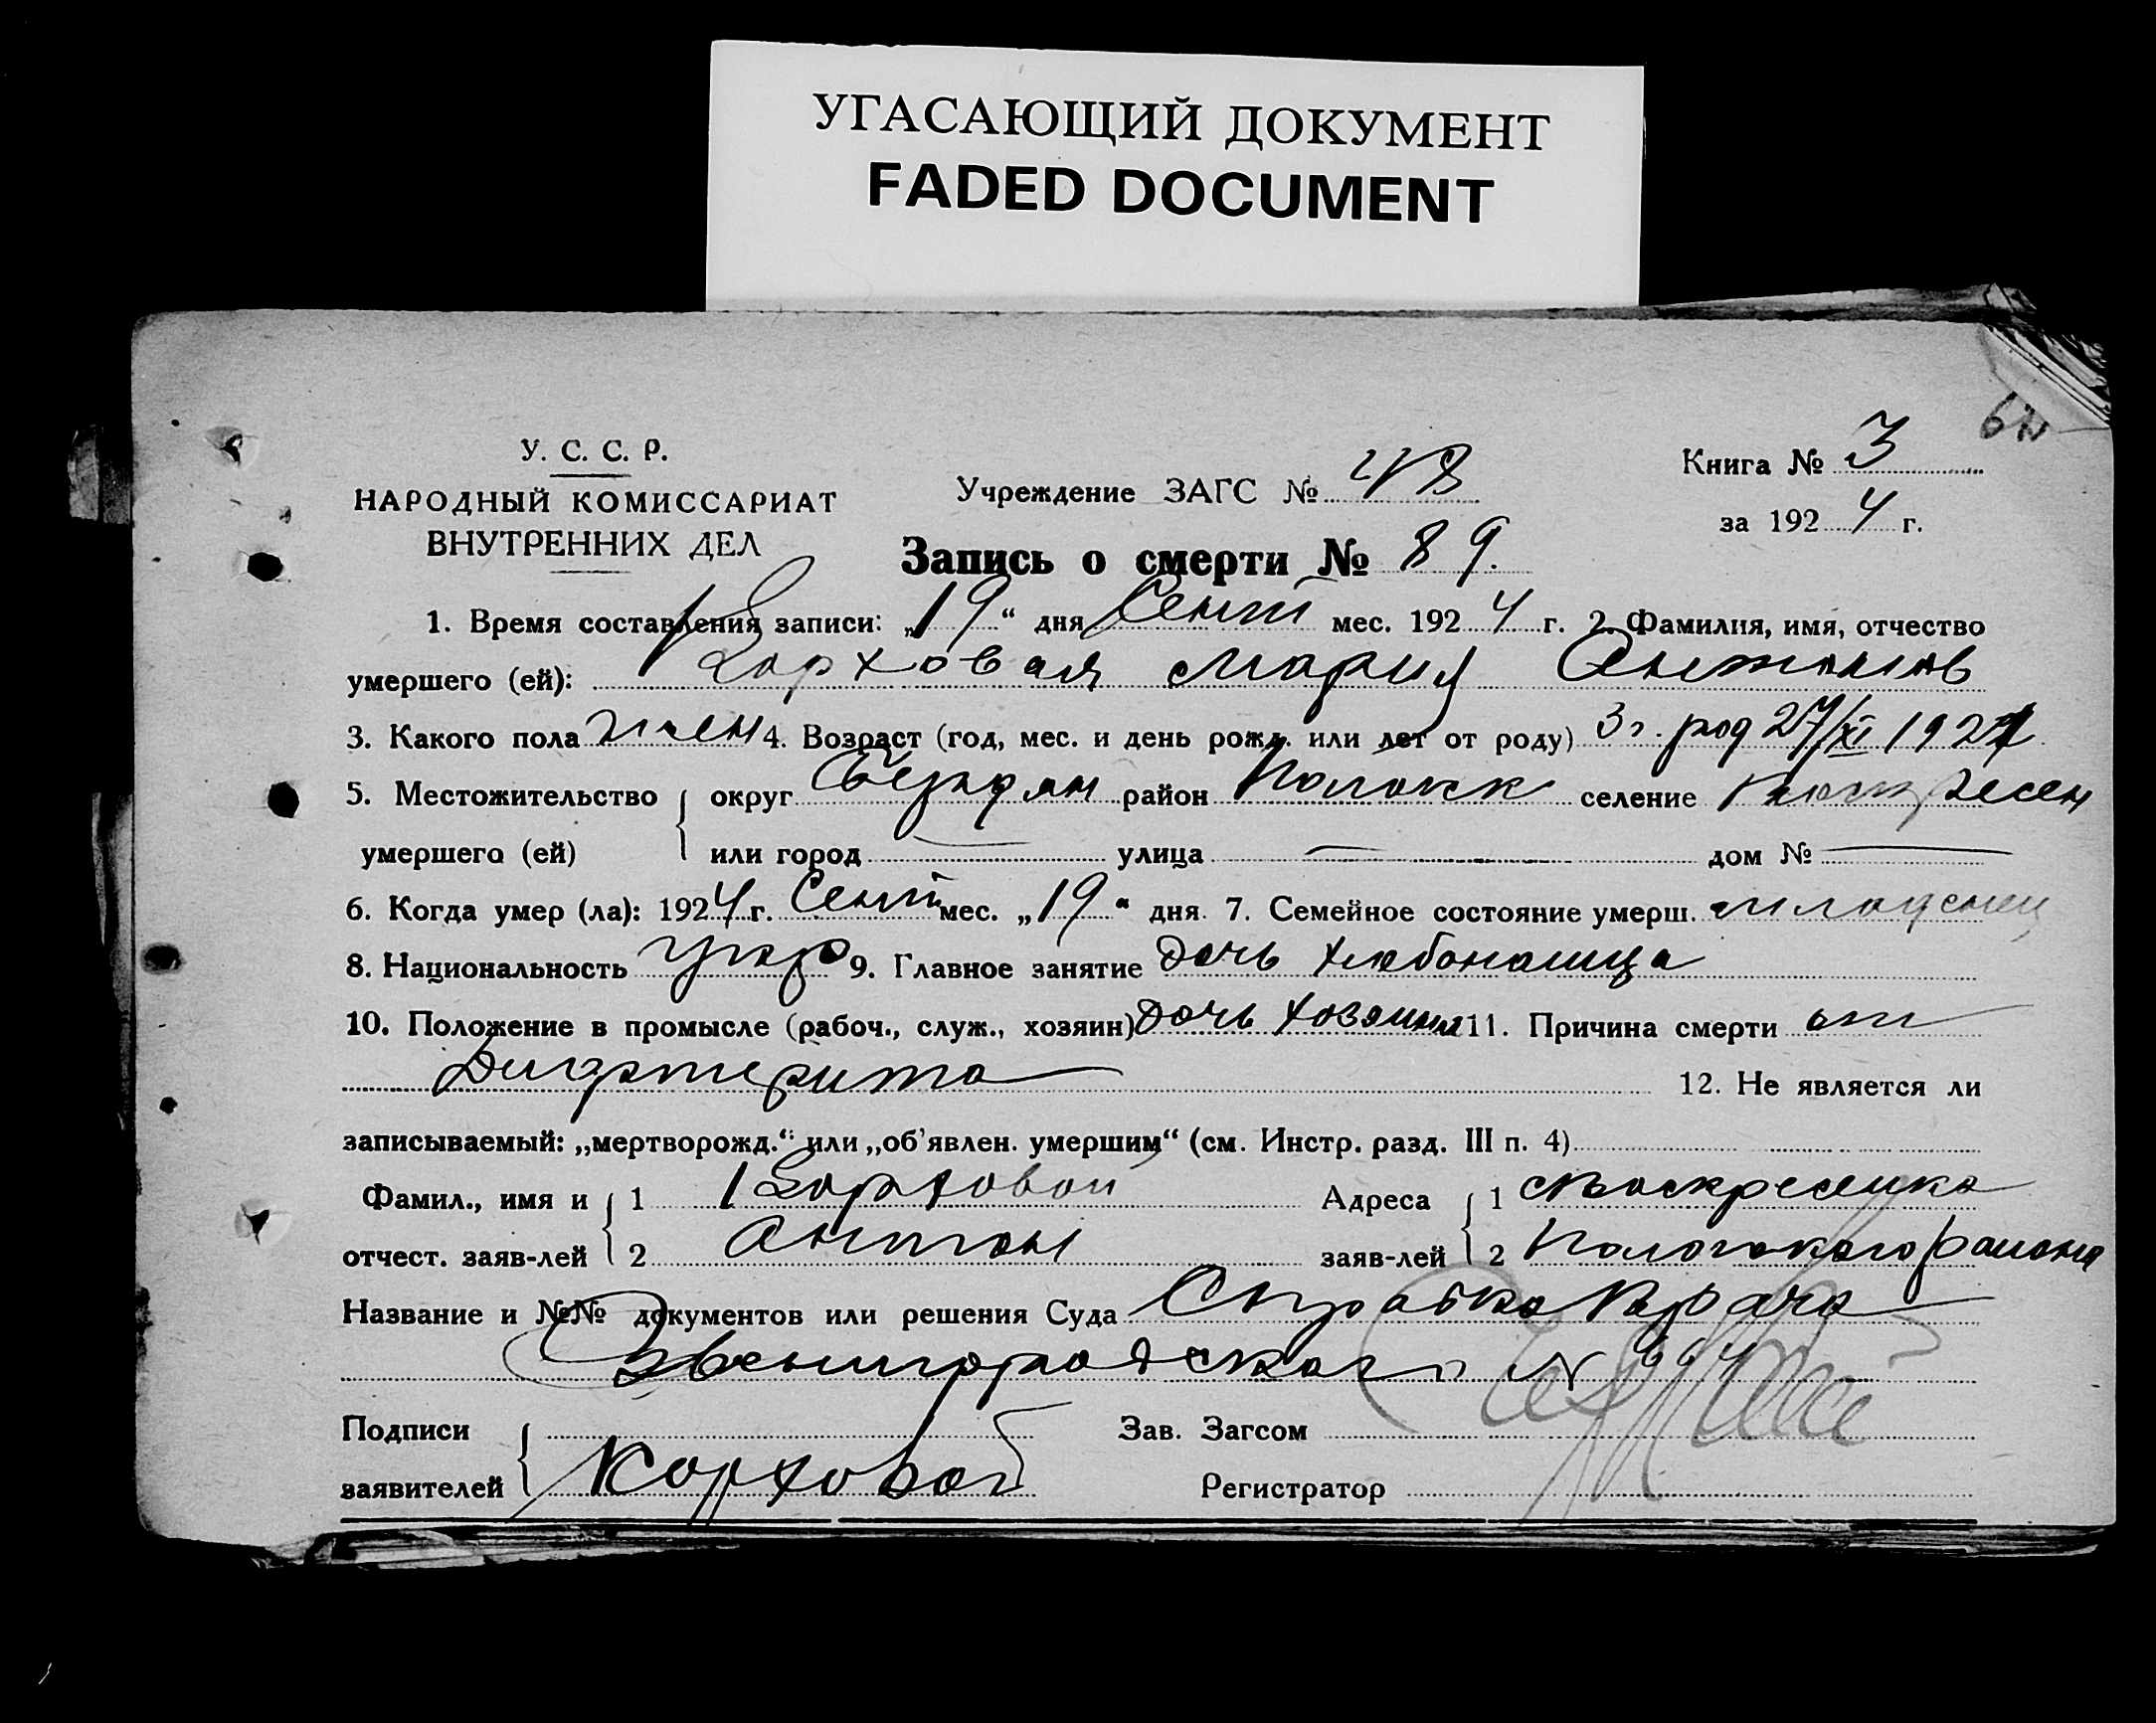 УГАСАЮЩИЙ ДОКУМЕНТ
FADED DOCUMENT
У. С. С. Р.
НАРОДНЫЙ КОМИССАРИАТ
ВНУТРЕННИХ ДЕЛ
Учреждение ЗАГС №
Книга № 3
за 1924 г.
Запись о смерти № 89.
1. Время составления записи: „19“ дня Сент мес. 1924 г. 2. Фамилия, имя, отчество
умершего (ей): Корховая Мария Антонов
3. Какого пола жен 4. Возраст (год, мес. и день рожд. или лет от роду) 3 г. род 27/XI 1921
5. Местожительство округ Бердян район Пологск селение Воскресен
умершего (ей) или город — улица — дом № —
6. Когда умер (ла): 1924 г. Сент мес. „19“ дня. 7. Семейное состояние умерш. младенец
8. Национальность укр 9. Главное занятие дочь хлебопашца
10. Положение в промысле (рабоч., служ., хозяин) Дочь хозяина 11. Причина смерти от
Дифтерита 12. Не является ли
записываемый: „мертворожд.“ или „об'явлен. умершим“ (см. Инстр. разд. III п. 4)
Фамил., имя и 1 Корховой Адреса 1 с Воскресенка
отчест. заяв-лей 2 Антон заяв-лей 2 Пологского района
Название и №№ документов или решения Суда Справка Врача
Звенигородского N
Подписи Зав. Загсом
заявителей Корховой Регистратор